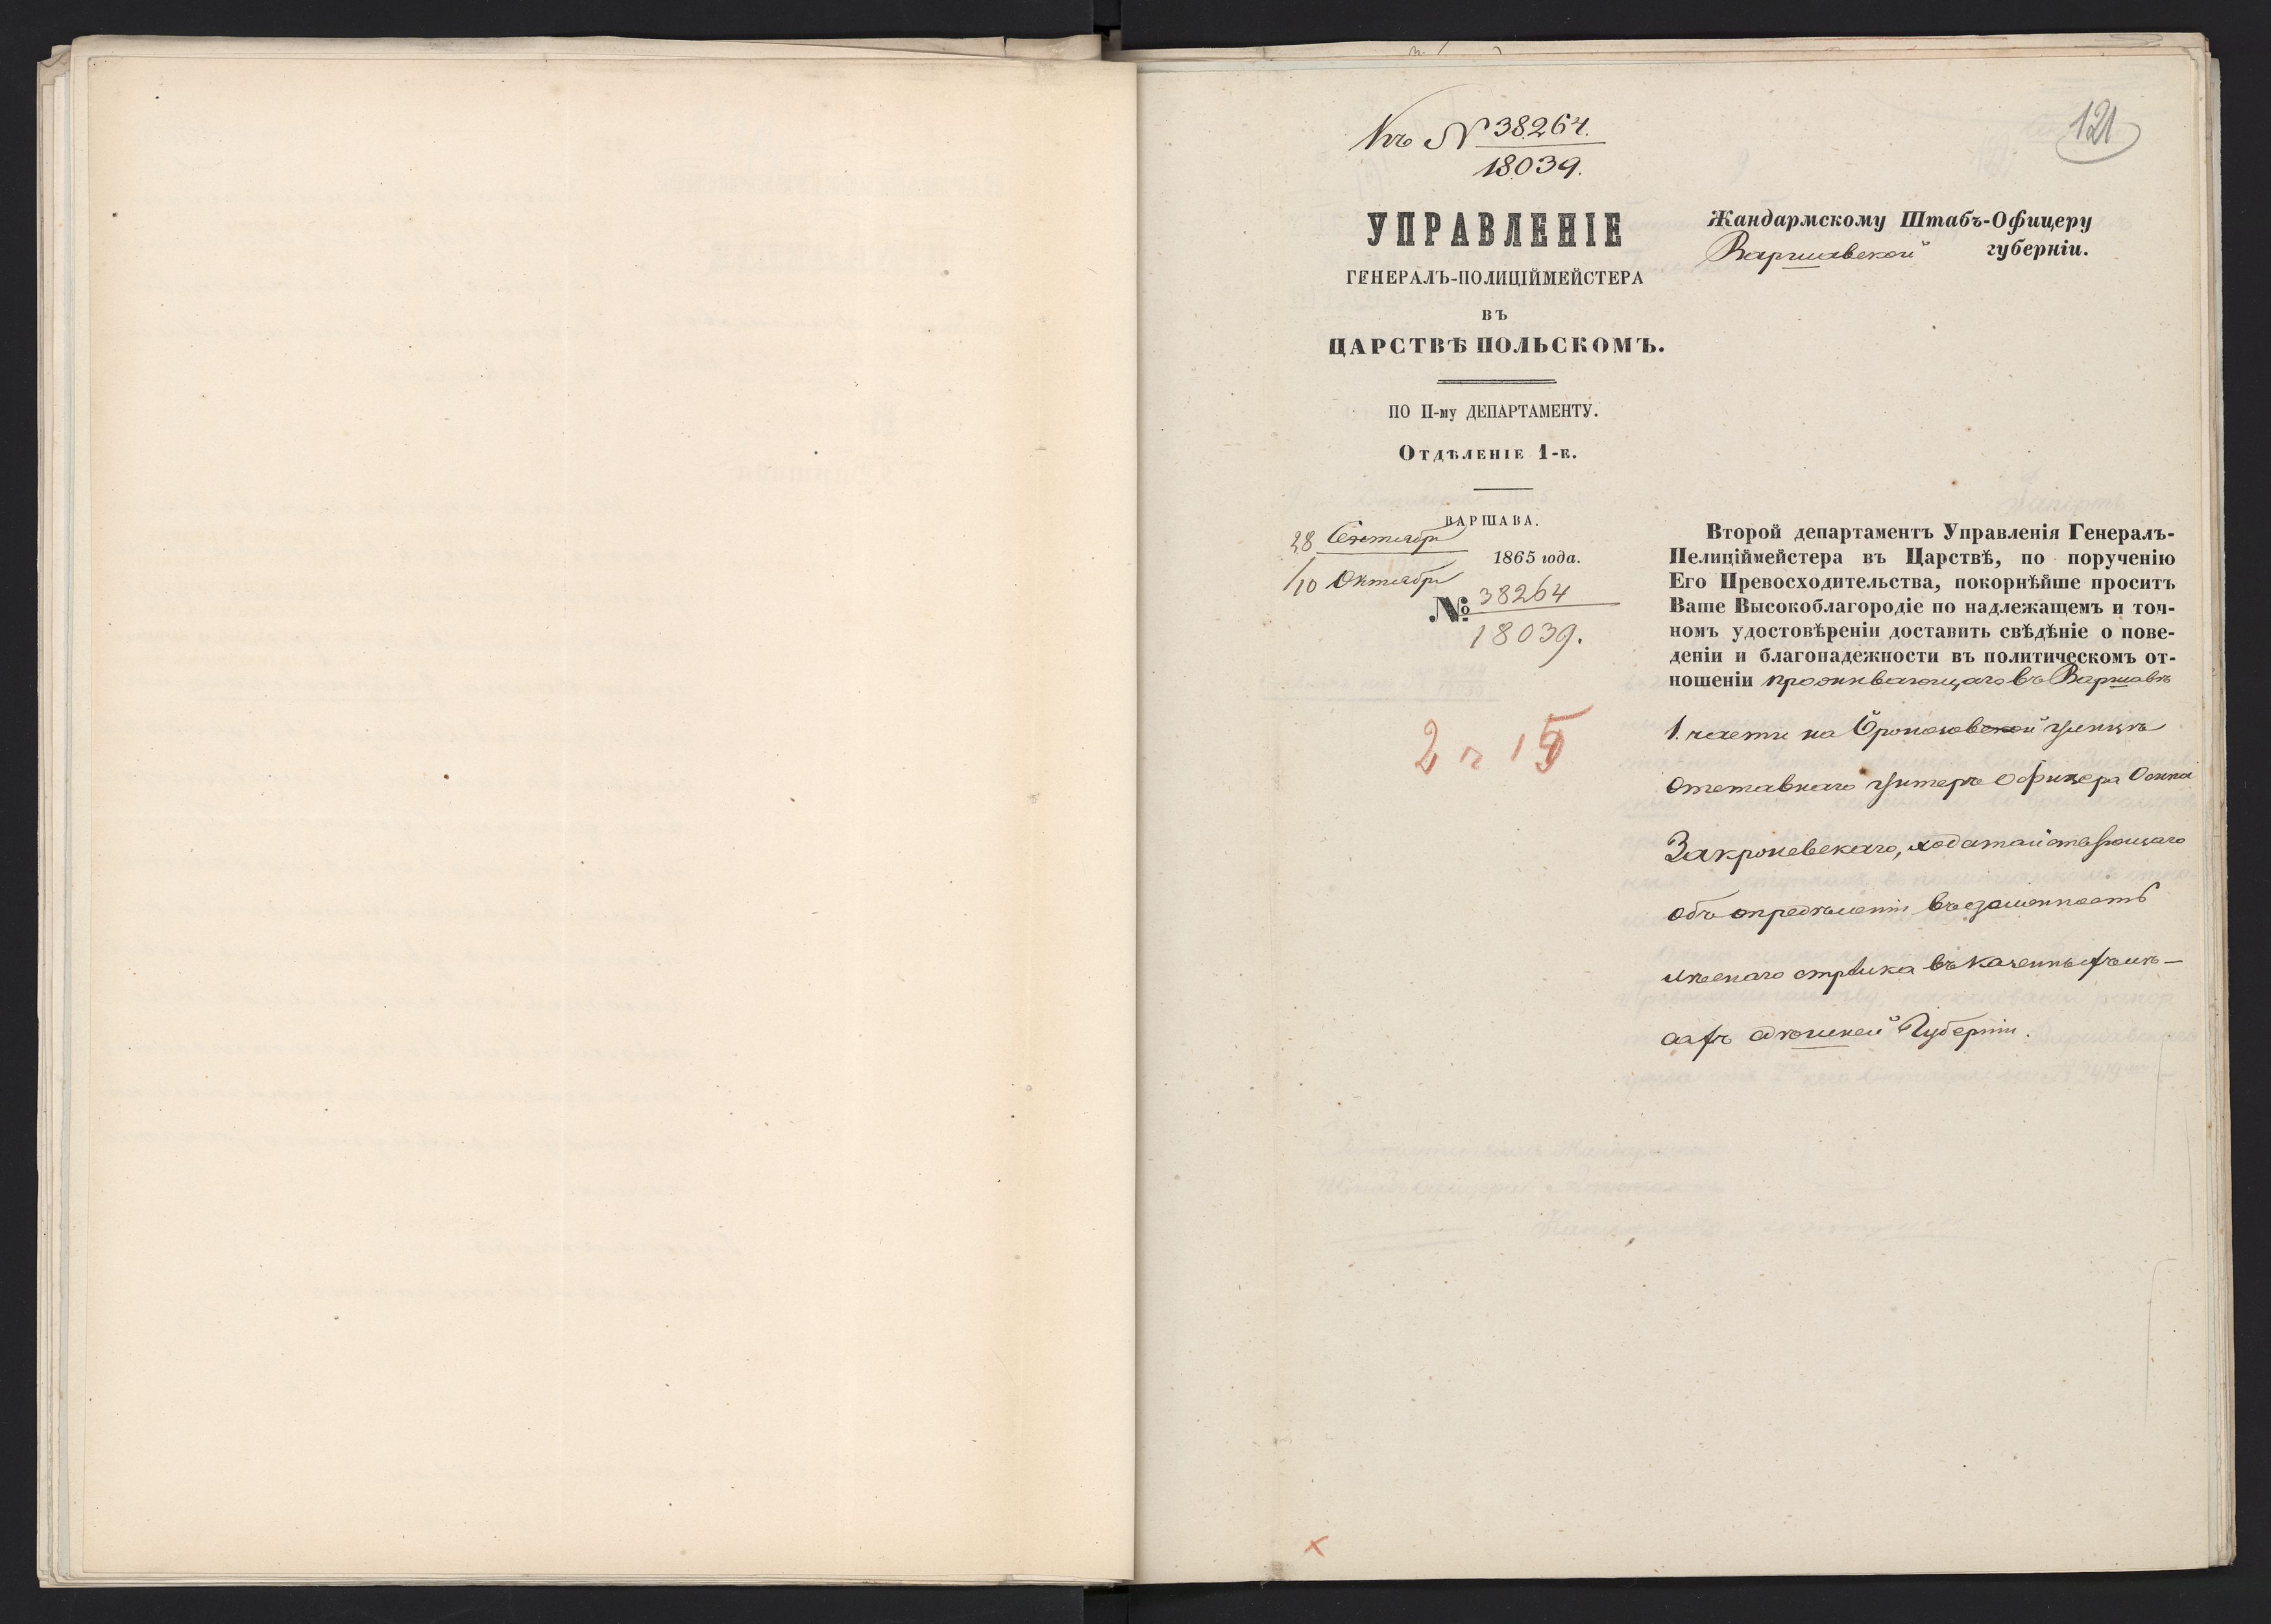 121
Къ № 38264.
18039.
УПРАВЛЕНІЕ
ГЕНЕРАЛЪ-ПОЛИЦІЙМЕЙСТЕРА
ВЪ
ЦАРСТВѢ ПОЛЬСКОМЪ.
ПО II-му ДЕПАРТАМЕНТУ.
Отдѣленіе 1-е.
ВАРШАВА.
28 Сентября
1865 года.
/10 Октября
№ 38264
18039.
Жандармскому Штабъ-Офицеру
Варшавской губерніи.
Второй департаментъ Управленія Генералъ-
Пелиціймейстера въ Царствѣ, по порученію
Его Превосходительства, покорнѣйше проситъ
Ваше Высокоблагородіе по надлежащемъ и точ-
номъ удостовѣреніи доставить свѣдѣніе о пове-
деніи и благонадежности въ политическомъ от-
ношеніи проживающаго въ Варшавѣ
1. части на улицѣ
отставнаго Унтеръ Офицера Осипа
Закроневскаго, ходатайствующаго
объ опредѣленіи въ должность
лѣснаго стрѣлка въ казенныхъ лѣ-
сахъ здѣшней Губерніи.